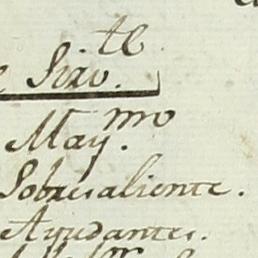 Sirv.te
May.mo
Sobresaliente.
Ayudantes.